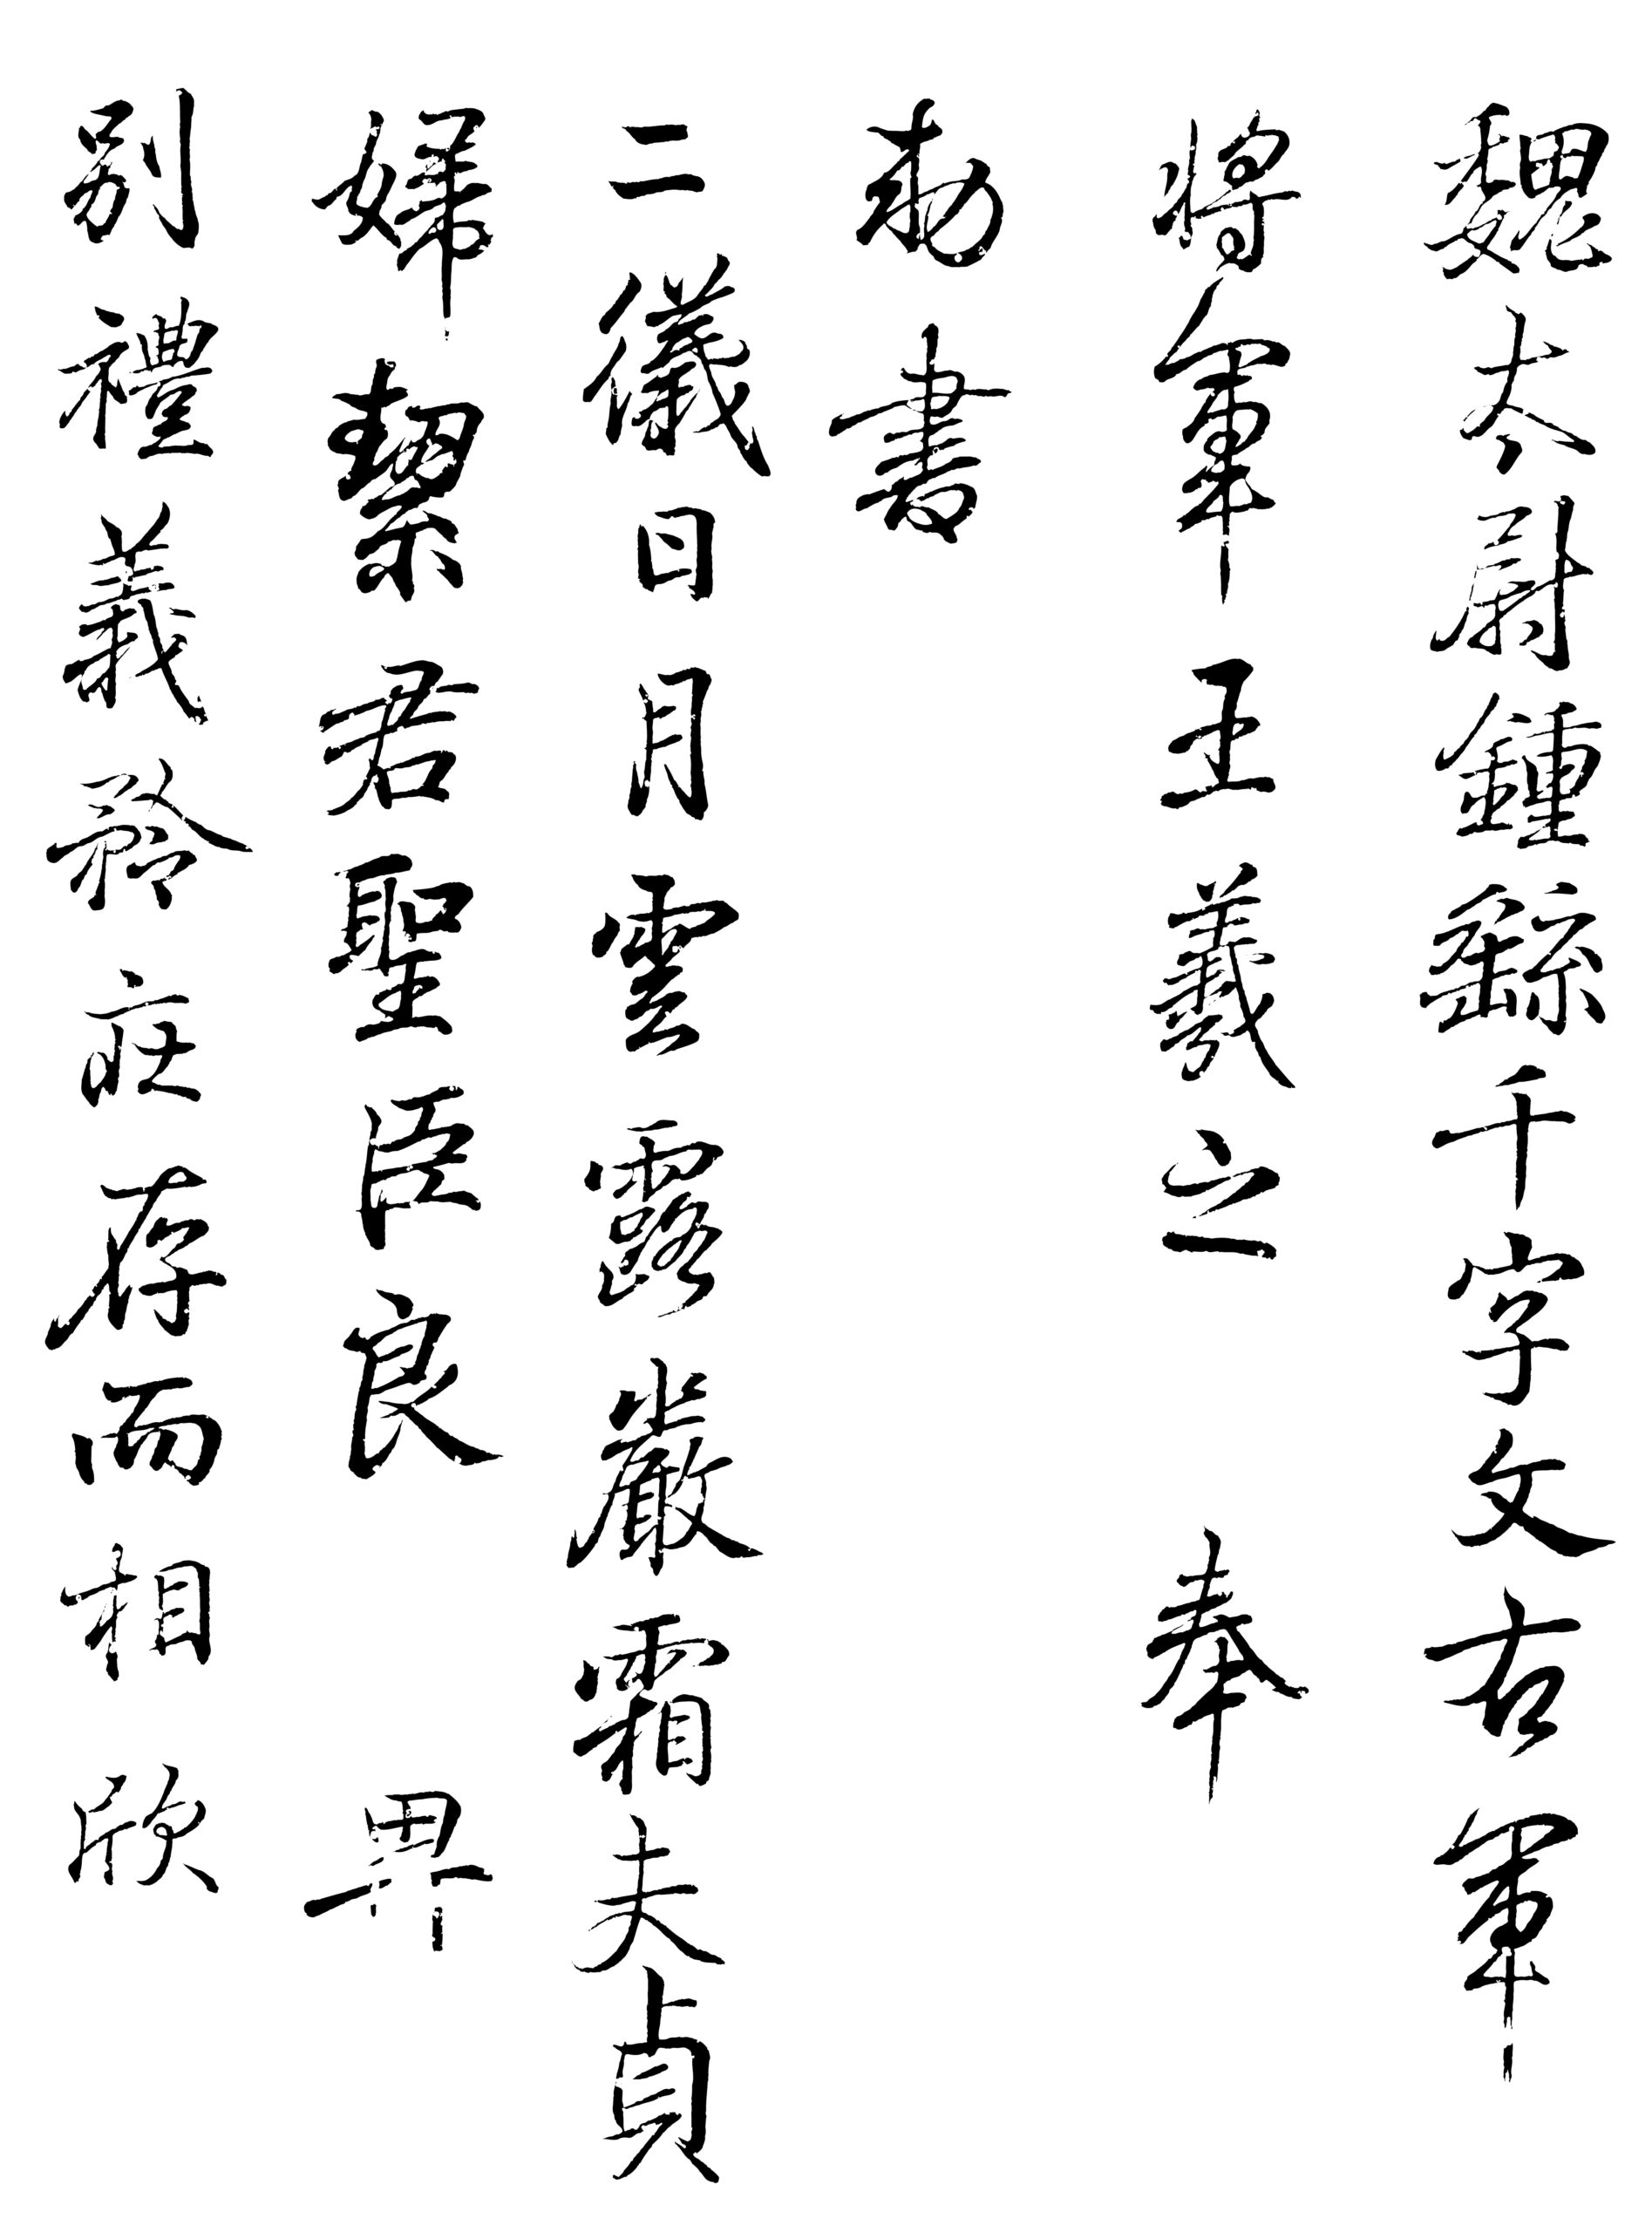 魏太尉鍾繇千字文右軍
將軍王羲之奉
勑書
二儀日月雲露嚴霜夫貞
婦絜君聖臣良
別禮義矜庄存而相欣